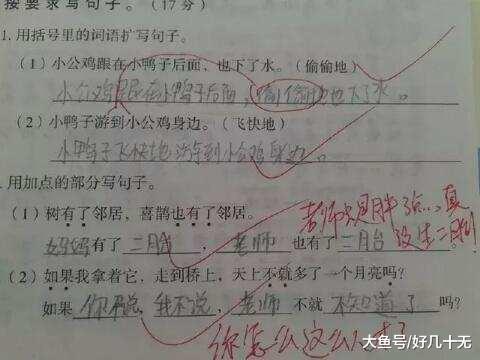 按要求写句子。(17分)
1. 用括号里的词语扩写句子。
(1)小公鸡跟在小鸭子后面,也下了水。(偷偷地)
小公鸡跟在小鸭子后面,偷偷地也下了水。
(2)小鸭子游到小公鸡身边。(飞快地)
小鸭子飞快地游到小公鸡身边。
用加点的部分写句子。
(1)树有了邻居,喜鹊也有了邻居。
妈妈有了二月台,老师也有了二月台
老师只是胖了点,真
没生二胎
(2)如果我拿着它,走到桥上,天上不就多了一个月亮吗?
如果你不说,我不说,老师不就不知道了吗?
你怎么这么
大鱼号/好几十无